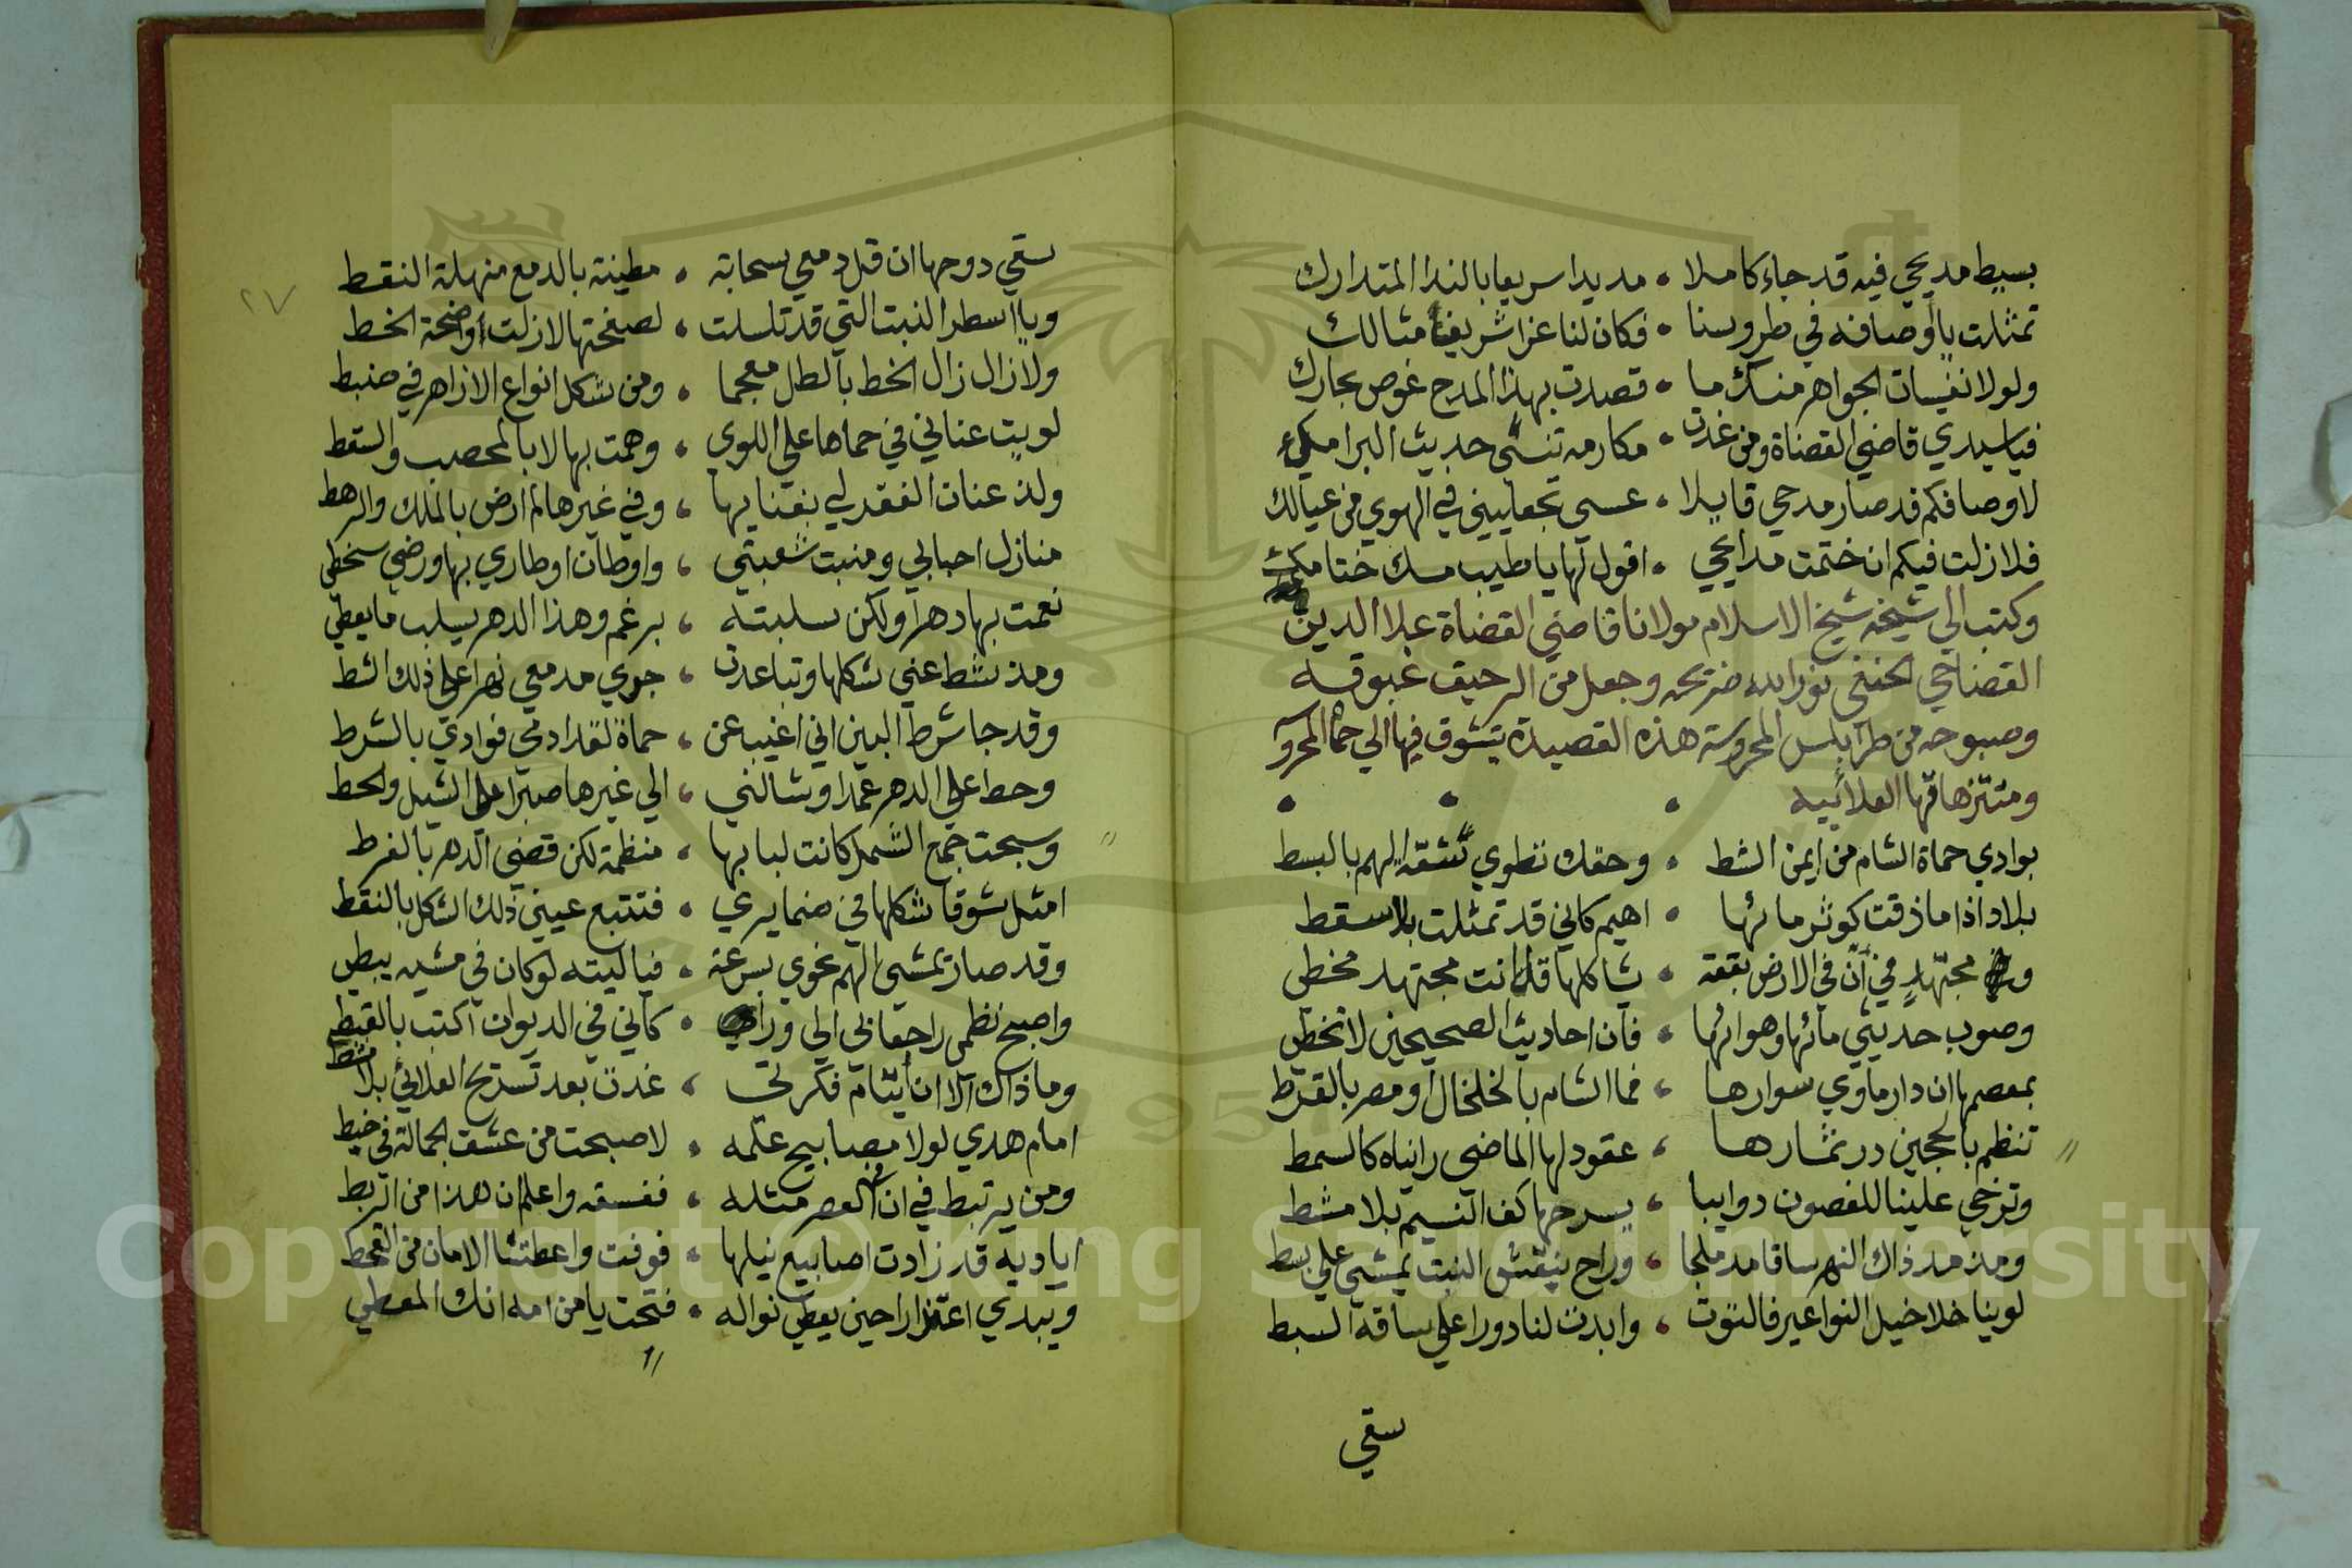 بسيط مديحي فيه قد جاء كاملا • مديدا سريعا بالندا المتدارك
تمثلت بأوصافه في طروسنا • فكان لنا عزا شريفا مثالك
ولولا نفيسات الجواهر منك ما • قصدت بهذا المدح غوص بحارك
فياسيدي قاضي القضاة ومن غدت • مكارمه تنسي حديث البرامك
لاوصافكم قد صار مدحي قايلا • عسي تجعليني في الهوي من عيالك
فلازلت فيكم ان ختمت مدايحي • اقول لها ياطيب مسك ختامك
وكتب الي شيخه شيخ الاسلام مولانا قاضي القضاة علاا الدين
القضامي الحنفي نور الله ضريحه وجعل من الرحيق غبوقه
وصبوحه من طرابلس المحروسة هذه القصيدة يتشوق فيها الي حما المحروسة
ومتنزهاتها العلائيه
بوادي حماة الشام من ايمن الشط • وحقك تطوي شقة الهم بالبسط
بلاد اذا ماذقت كوثر مائها • اهيم كاني قد تمثلت بالاسقط
مجتهد في أنّ في الارض بقعة • يشاكلها قل انت مجتهد مخطي
وصوب حديثي مائها وهوائها • فان احاديث الصحيحين لاتخطي
بمعصمها ان دار ماوي سوارها • فما الشام بالخلخال او مصر بالقرط
تنظم بالجين در نثارها • عقود لها الماضي رايناه كالسمط
وترخي علينا للغصون دوايبا • يسرحها كف النسيم بلا مشط
ومذ مد ذاك النهر ساقا مدملجا • وراح بنقش النبت يمشي علي بسط
لوينا خلاخيل النواعير فالتوت • وابدت لنا دورا علي ساقه السبط
سقي
٢٧
سقي دوحها ان قل دمعي بسحابة • مطينة بالدمع منهلة النقط
ويا اسطر النبت التي قد تسلسلت • لصفحتها لازلت واضحة الخط
ولازال زال الخط بالطل معجما • ومن شكل انواع الازاهر في ضبط
لويت عناني في حماها علي اللوي • وهمت بها لا بالمحصب والسقط
ولذ عنان الفقر لي بفنايها • وفي غيرها لم ارض بالملك والرهط
منازل احبابي ومنبت شعبتي • واوطان اوطاري بها ورضي سخطي
نعمت بها دهرا ولكن سلبته • برغم وهذا الدهر يسلب مايعطي
ومذ شط عني شكلها وتباعدت • جري مدمعي نهرا علي ذلك الشط
وقد جا شرط البين اني اغيب عن • حماة لقد ادمي فوادي بالشرط
وحط علي الدهر عمدا وشالني • الي غيرها صبرا علي الشيل والحط
وسبحت جمع الشمل كانت لبا بها • منظمة لكن قضي الدهر بالفرط
امثل شوقا شكلها في ضما يري • فتتبع عيني ذلك الشكل بالنقط
وقد صار يمشي الهم نحوي بسرعة • فياليته لو كان في مشيه يبطي
واصبح نظمي راجعا بي الي ورا • كاني في الديوان اكتب بالقبط
وماذاك الا ان أيتام فكرتي • غدت بعد تسريح العلائي بلا مشط
امام هدي لولا مصابيح علمه • لاصبحت من عشق الجهالة في خبط
ومن يرتبط في ان للعصر مثله • ففسقه واعلم ان هذا من الربط
اياديه قد زادت اصابيع نيلها • فوفت واعطتنا الامان من القحط
ويبدي اعتذارا حين يعطي نواله • فتحت يامن امه انك المعطي